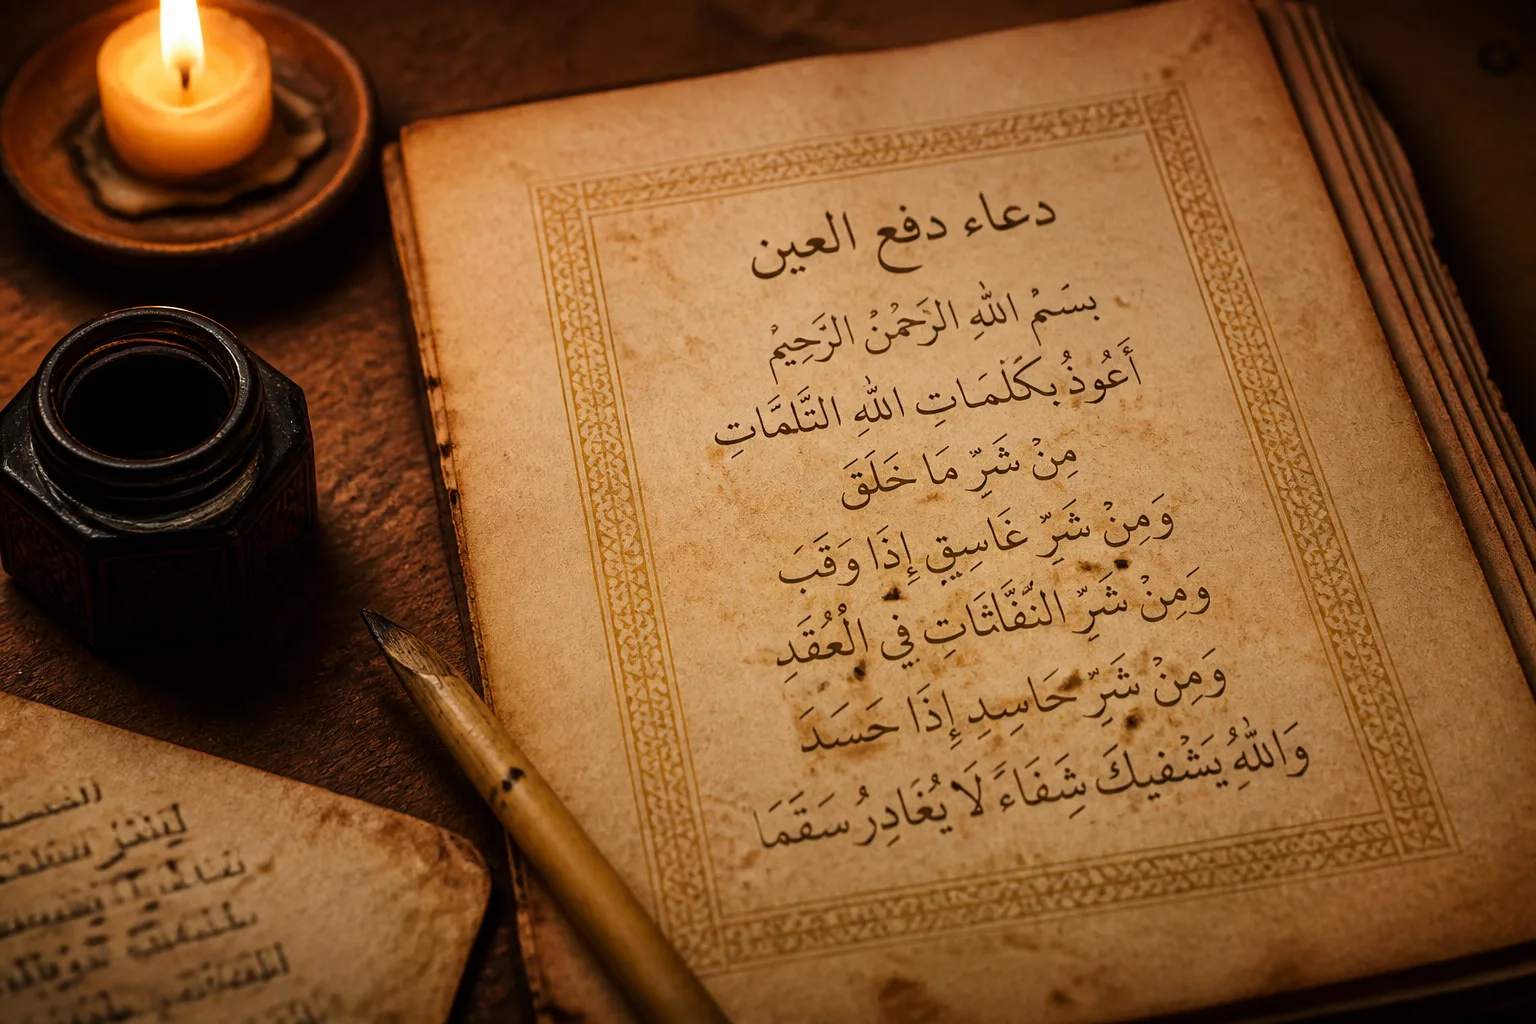 دعاء دفع العين
بسَمُ اللهِ الرَحمْنُ الرَّحِيمُ
أَعُوذُ بكَلَمَاتِ اللهِ التَّلمَّاتِ
مِنْ شَرِّ مَا خَلَقَ
وَمِنْ شَرِّ غَاسِقٍ إِذَا وَقَبَ
وَمِنْ شَرِّ النَّفَّاثَاتِ فِي الْعُقَدِ
وَمِنْ شَرِّ حَاسِدٍ إِذَا حَسَدَ
وَاللهُ يَشْفيكَ شِفَاءً لَا يُغَادِرُ سَقَمَا